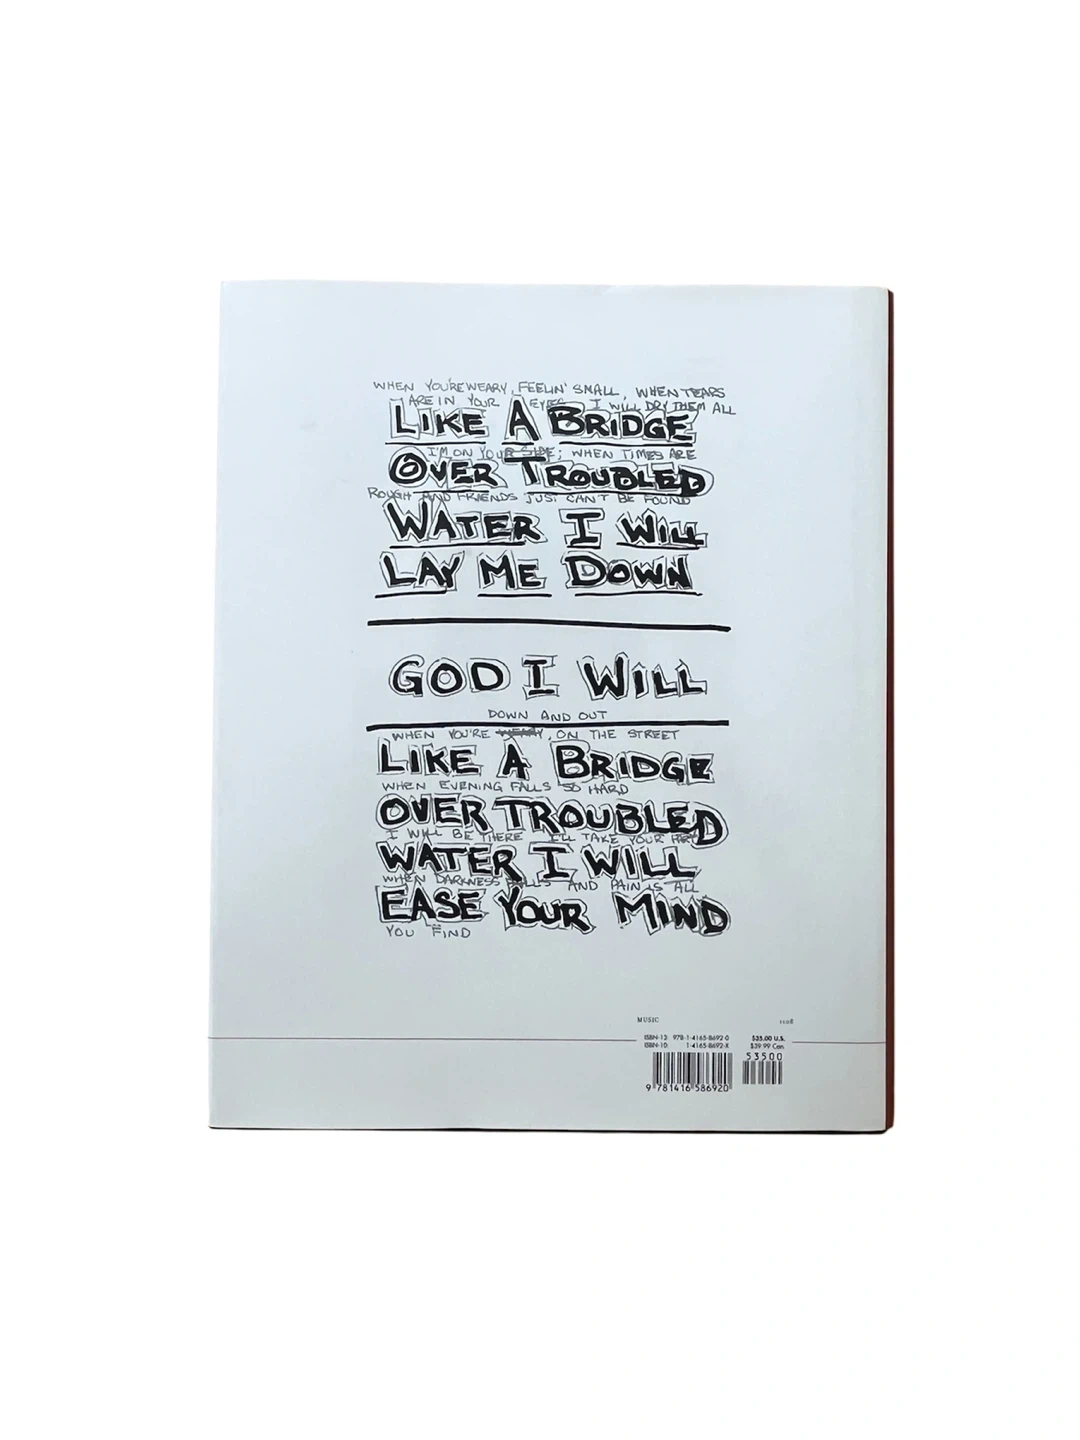 WHEN YOU'RE WEARY, FEELIN' SMALL, WHEN TEARS
ARE IN YOUR EYES I WILL DRY THEM ALL
LIKE A BRIDGE
I'M ON YOUR SIDE; WHEN TIMES ARE
OVER TROUBLED
ROUGH AND FRIENDS JUST CAN'T BE FOUND
WATER I WILL
LAY ME DOWN
GOD I WILL
DOWN AND OUT
WHEN YOU'RE WEARY, ON THE STREET
LIKE A BRIDGE
WHEN EVENING FALLS SO HARD
OVER TROUBLED
I WILL BE THERE I'LL TAKE YOUR
WATER I WILL
WHEN DARKNESS FALLS AND PAIN IS ALL
EASE YOUR MIND
YOU FIND
MUSIC 1108
ISBN-13: 978-1-4165-8692-0 $35.00 U.S.
ISBN-10: 1-4165-8692-X $39.99 Can.
53500
9 781416 586920